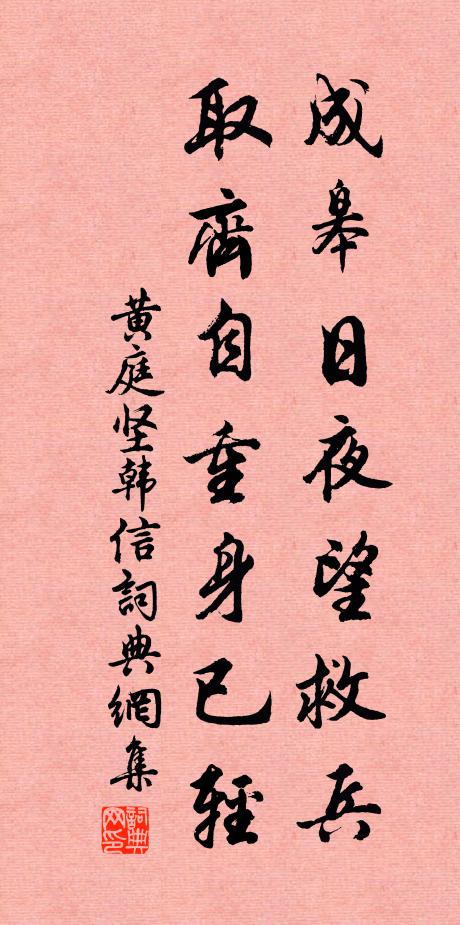 成皋日夜望救兵
取齊自重身已輕
黄庭坚韩信詞典網集
詞典网印